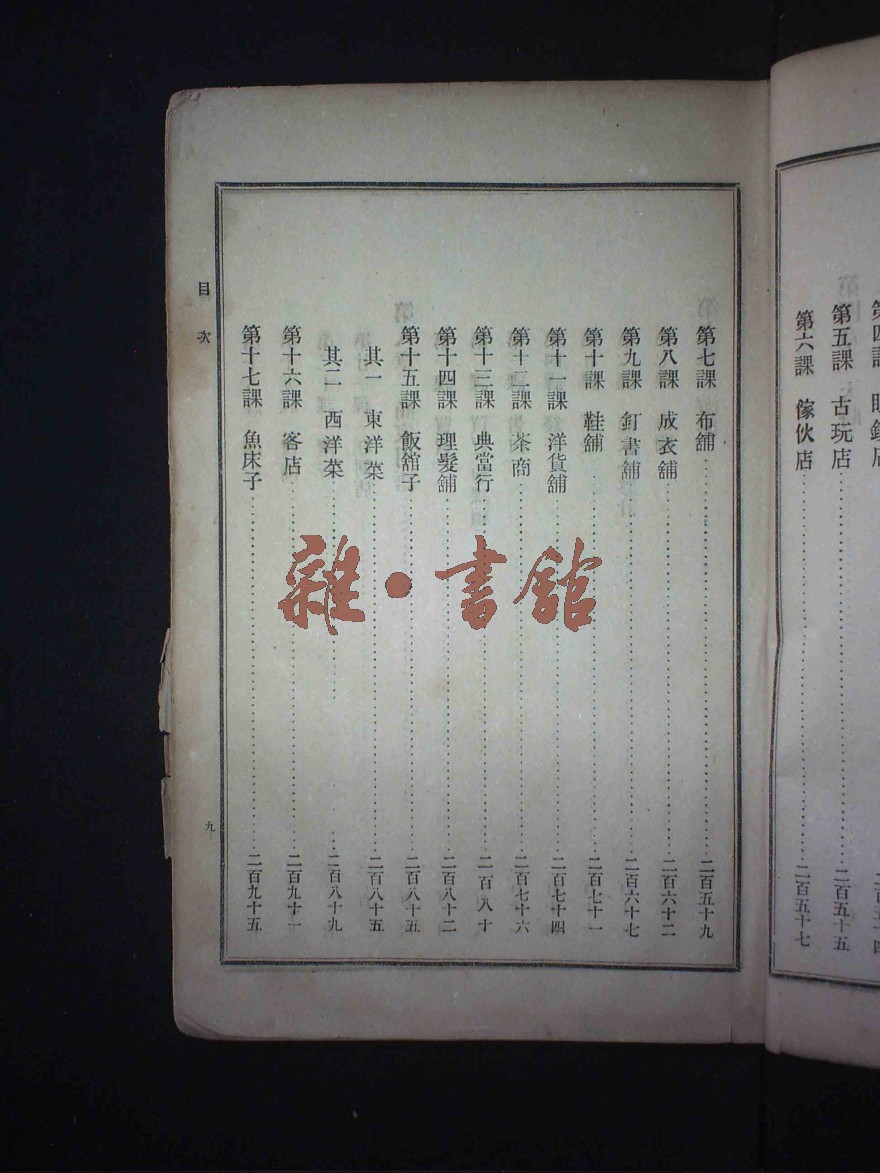 第五課　古玩店……二百五十五
第六課　傢伙店……二百五十七
第七課　布舖……二百五十九
第八課　成衣舖……二百六十二
第九課　釘書舖……二百六十七
第十課　鞋舖……二百七十一
第十一課　洋貨舖……二百七十四
第十二課　茶商……二百七十六
第十三課　典當行……二百八十
第十四課　理髮舖……二百八十二
第十五課　飯舘子……二百八十五
其一　東洋菜……二百八十五
其二　西洋菜……二百八十九
第十六課　客店……二百九十一
第十七課　魚床子……二百九十五
目次
九
雜·書館